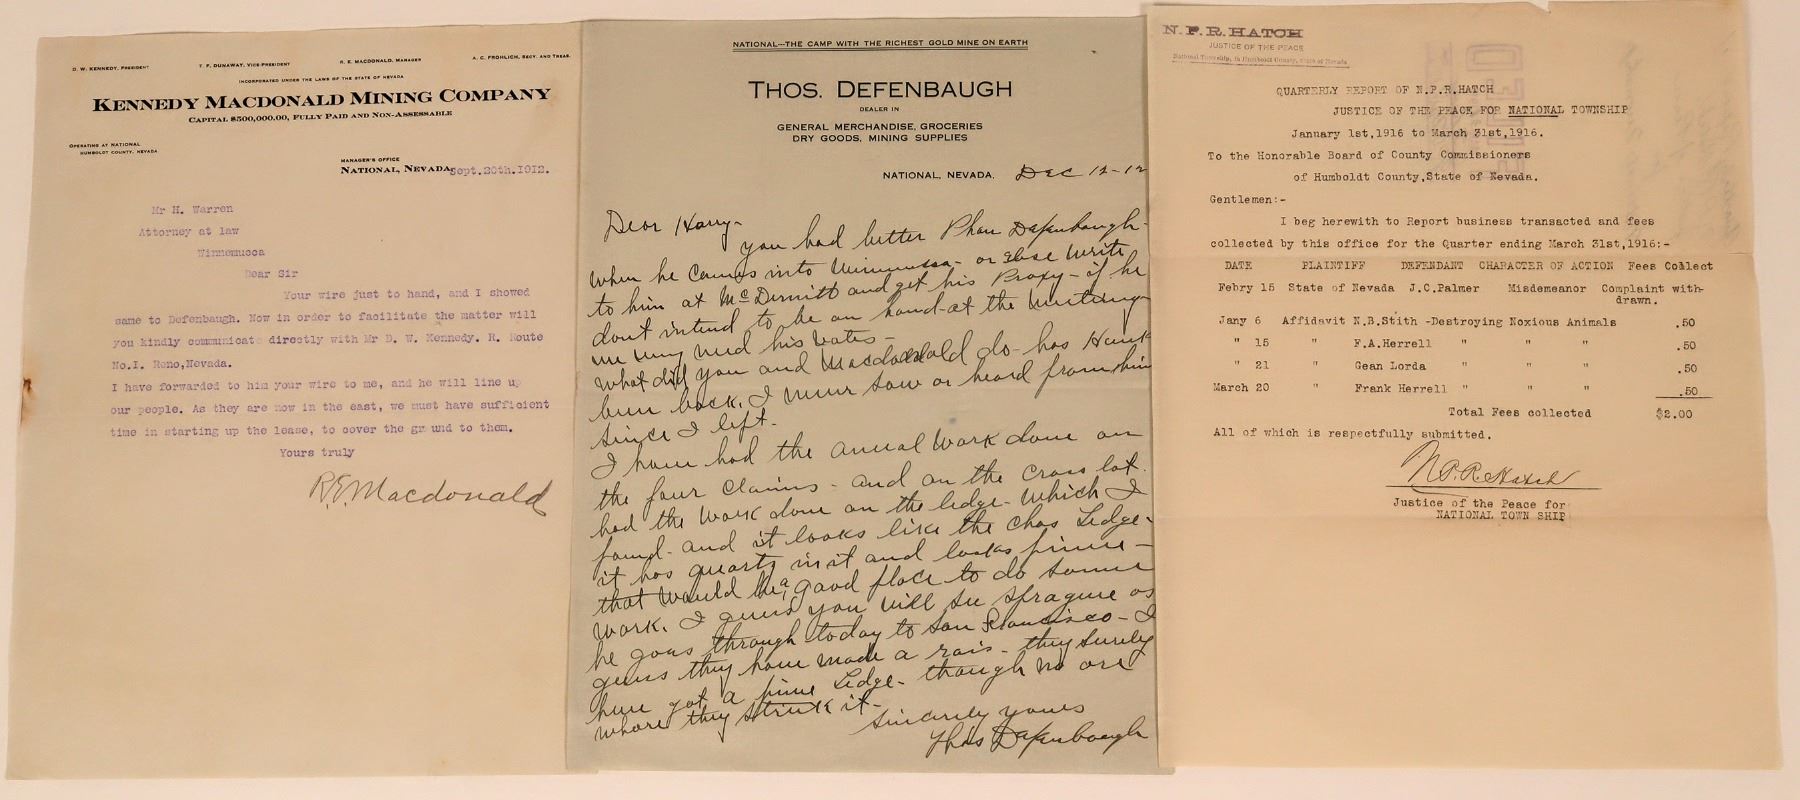 D. W. KENNEDY, PRESIDENT
T. F. DUNAWAY, VICE-PRESIDENT
R. E. MACDONALD, MANAGER
A. C. FROHLICH, SECY. AND TREAS.
INCORPORATED UNDER THE LAWS OF THE STATE OF NEVADA
KENNEDY MACDONALD MINING COMPANY
CAPITAL $500,000.00, FULLY PAID AND NON-ASSESSABLE
OPERATING AT NATIONAL
HUMBOLDT COUNTY, NEVADA
MANAGER'S OFFICE
NATIONAL, NEVADA, Sept.20th.1912.
Mr H. Warren
Attorney at law
Winnemucca
Dear Sir
Your wire just to hand, and I showed
same to Defenbaugh. Now in order to facilitate the matter will
you kindly communicate directly with Mr D. W. Kennedy. R. Route
No.I. Reno,Nevada.
I have forwarded to him your wire to me, and he will line up
our people. As they are now in the east, we must have sufficient
time in starting up the lease, to cover the gr und to them.
Yours truly
R.E. Macdonald
NATIONAL---THE CAMP WITH THE RICHEST GOLD MINE ON EARTH
THOS. DEFENBAUGH
DEALER IN
GENERAL MERCHANDISE, GROCERIES
DRY GOODS, MINING SUPPLIES
NATIONAL, NEVADA, Dec 12-12
Dear Harry-
you had better Phon Defenbaugh-
when he comes into Winnemucca- or Else Write
to him at McDermitt and get his Proxy- if he
dont intend to be on hand at the meeting
we may need his votes-
What did you and Macdonald do- has Hunk
been back. I never saw or heard from him
since I left.
I have had the anual work done on
the four claims- and on the cross lot
had the work done on the ledge- which I
found- and it looks like the Chas Ledge-
it has quartz in it and looks fine-
that would be a good place to do some
work. I guess you will see Sprague as
he goes through today to San Francisco- I
guess they have made a rais- they surely
have got a fine Ledge- though no ore
where they struck it-
Sincerely yours
Thos Defenbaugh
N.P.R.HATCH
JUSTICE OF THE PEACE
National Township, in Humboldt County, State of Nevada
QUARTERLY REPORT OF N.P.R.HATCH
JUSTICE OF THE PEACE FOR NATIONAL TOWNSHIP
January 1st,1916 to March 31st,1916.
To the Honorable Board of County Commissioners
of Humboldt County,State of Nevada.
Gentlemen:-
I beg herewith to Report business transacted and fees
collected by this office for the Quarter ending March 31st,1916:-
DATE PLAINTIFF DEFENDANT CHARACTER OF ACTION Fees Collect
Febry 15 State of Nevada J.C.Palmer Misdemeanor Complaint with-
drawn.
Jany 6 Affidavit N.B.Stith -Destroying Noxious Animals .50
" 15 " F.A.Herrell " " " .50
" 21 " Gean Lorda " " " .50
March 20 " Frank Herrell " " " .50
Total Fees collected $2.00
All of which is respectfully submitted.
N.P.R.Hatch
Justice of the Peace for
NATIONAL TOWN SHIP